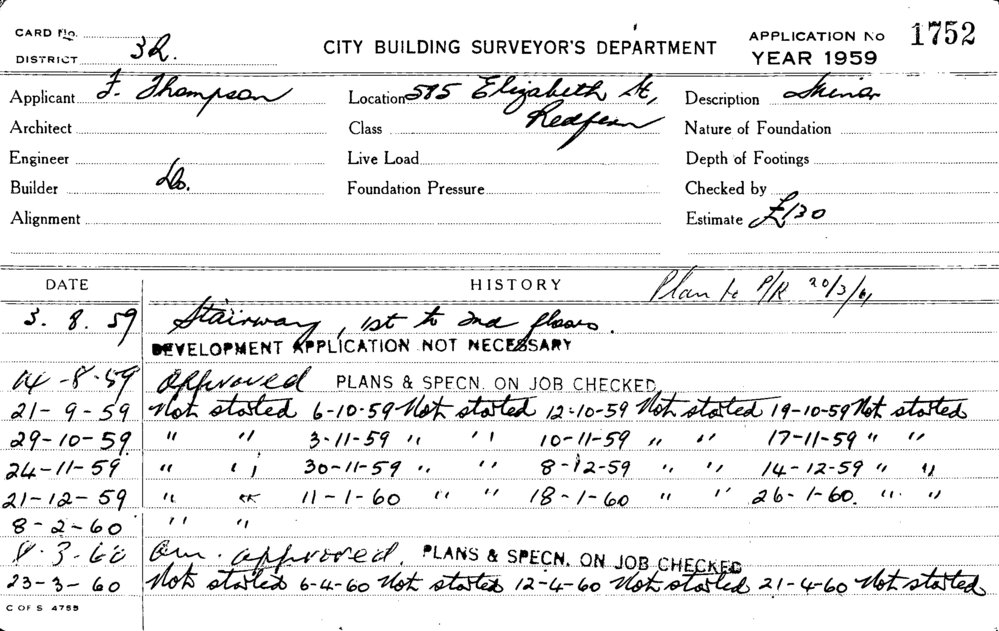 CARD No.
DISTRICT 3R.
CITY BUILDING SURVEYOR'S DEPARTMENT
APPLICATION No 1752
YEAR 1959
Applicant F. Thompson
Location 585 Elizabeth St,
Redfern
Description Minor
Architect
Class
Nature of Foundation
Engineer
Live Load
Depth of Footings
Builder Do.
Foundation Pressure
Checked by
Alignment
Estimate £130
DATE HISTORY Plan to P/R 20/3/61
3. 8. 59 Stairway, 1st to 2nd floors.
DEVELOPMENT APPLICATION NOT NECESSARY
14-8-59 Approved PLANS & SPECN. ON JOB CHECKED
21-9-59 Not started 6-10-59 Not started 12-10-59 Not started 19-10-59 Not started
29-10-59 " " 3-11-59 " " 10-11-59 " " 17-11-59 " "
24-11-59 " " 30-11-59 " " 8-12-59 " " 14-12-59 " "
21-12-59 " " 11-1-60 " " 18-1-60 " " 26-1-60. " "
8-2-60 " "
8.3.60 Am. approved. PLANS & SPECN. ON JOB CHECKED
23-3-60 Not started 6-4-60 Not started 12-4-60 Not started 21-4-60 Not started
C OF S 4755